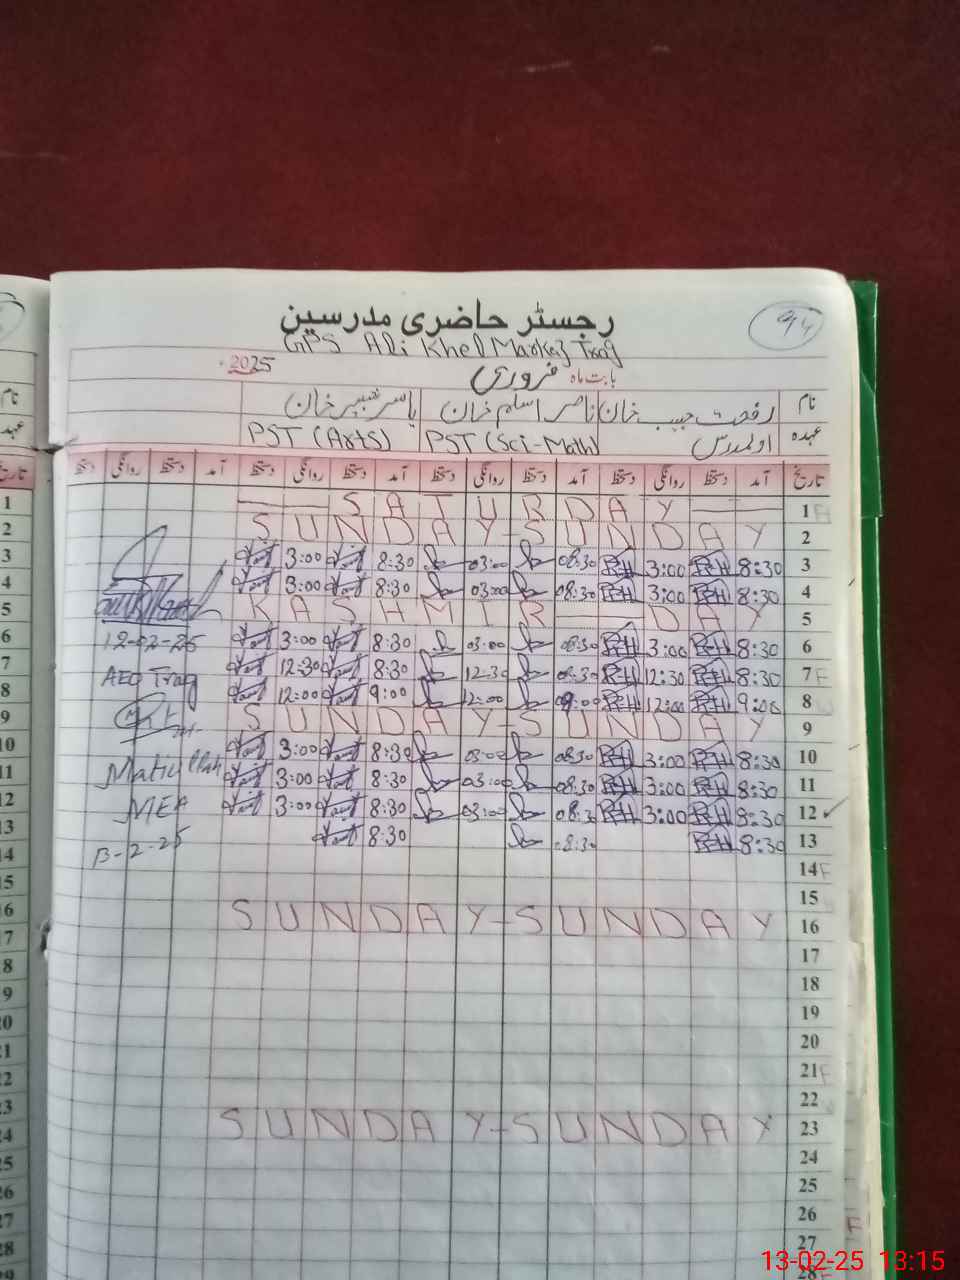 94
رجسٹر حاضری مدرسین
GPS Ali Khel Markaz Trag
بابت ماہ فروری 2025
نام رفعت حبیب خان ناصر اسلم خان یاسر شبیر خان
عہدہ اول مدرس PST (Sci-Math) PST (Arts)
تاریخ آمد دستخط روانگی دستخط آمد دستخط روانگی دستخط آمد دستخط روانگی دستخط آمد دستخط روانگی دستخط
1 SATURDAY
2 SUNDAY-SUNDAY
3 8:30 RH 3:00 RH 08:30 03:00 8:30 3:00
4 8:30 RH 3:00 RH 08:30 03:00 8:30 3:00
5 KASHMIR DAY
6 8:30 RH 3:00 RH 08:30 03:00 8:30 3:00
12-02-25
7 F 8:30 RH 12:30 RH 08:30 12:30 8:30 12:30
AEO Trag
8 9:00 RH 12:00 RH 09:00 12:00 9:00 12:00
9 SUNDAY-SUNDAY
10 8:30 RH 3:00 RH 08:30 03:00 8:30 3:00
Matiullah
11 8:30 RH 3:00 RH 08:30 03:00 8:30 3:00
12 8:30 RH 3:00 RH 08:30 03:00 8:30 3:00
MEA
13 8:30 RH 08:30 8:30
13-2-25
14 F
15
16 SUNDAY-SUNDAY
17
18
19
20
21 F
22
23 SUNDAY-SUNDAY
24
25
26
27
28 F
13-02-25 13:15